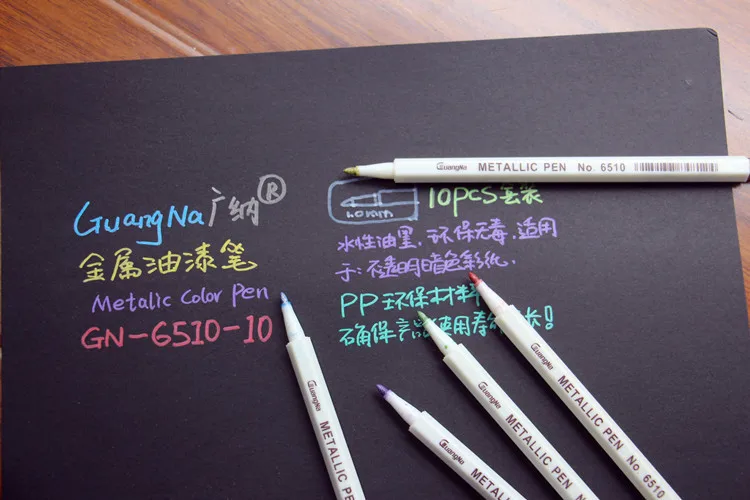 GuangNa广纳®
金属油漆笔
Metalic Color Pen
GN-6510-10
10pcs套装
水性油墨,环保无毒,适用
于:不透明暗色彩纸.
PP环保材料
确保产品使用寿
!
GuangNa METALLIC PEN No. 6510
GuangNa METALLIC PEN
GuangNa METALLIC
GuangNa METALLIC PEN
GuangNa METALLIC PEN No 6